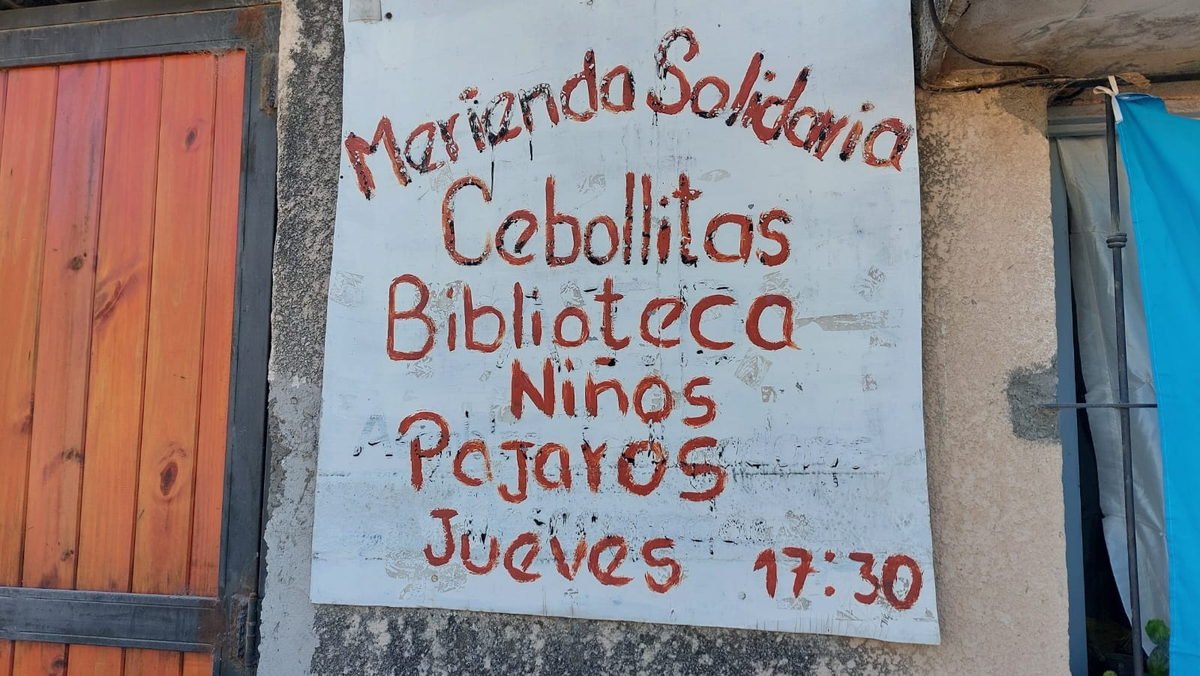 Merienda Solidaria
Cebollitas
Biblioteca
Niños
Pajaros
Jueves 17:30